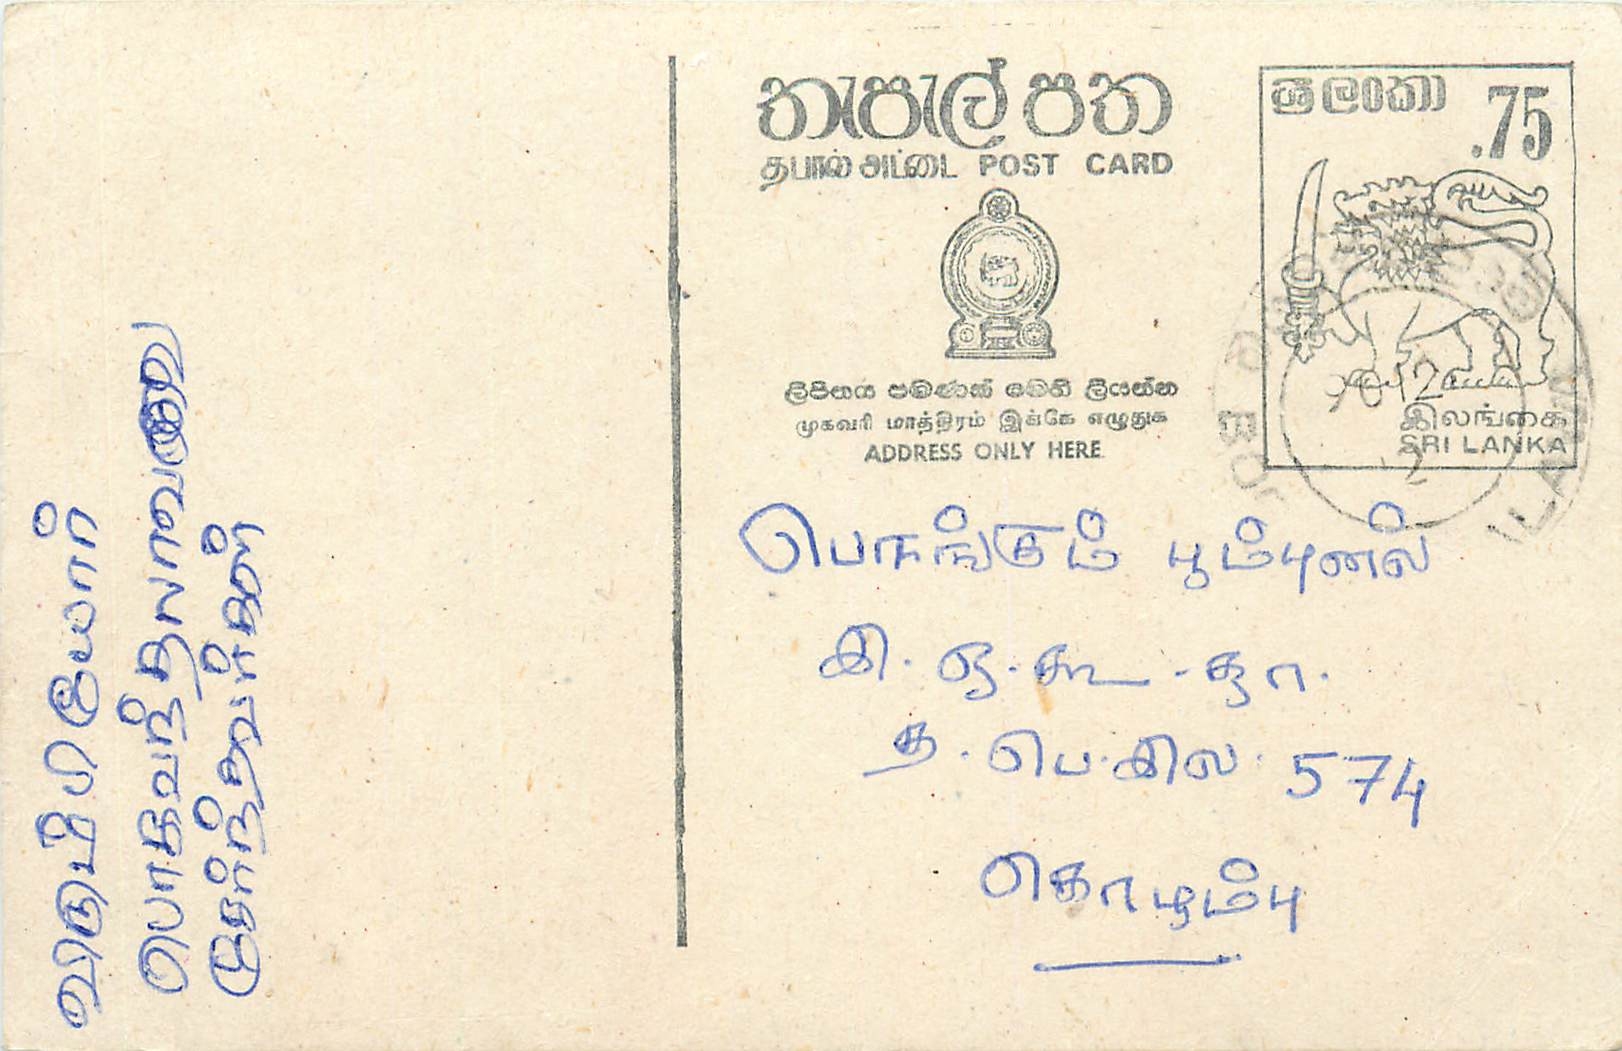 තැපැල් පත
தபால் அட்டை POST CARD
ශ්‍රී ලංකා .75
ලිපිනය පමණක් මෙහි ලියන්න
முகவரி மாத்திரம் இங்கே எழுதுக
ADDRESS ONLY HERE
இலங்கை
SRI LANKA
பொங்கும் பூம்புனல்
இ. ஒ. கூ. தா.
த. பெ. இல. 574
கொழும்பு
விரும்பியோர்